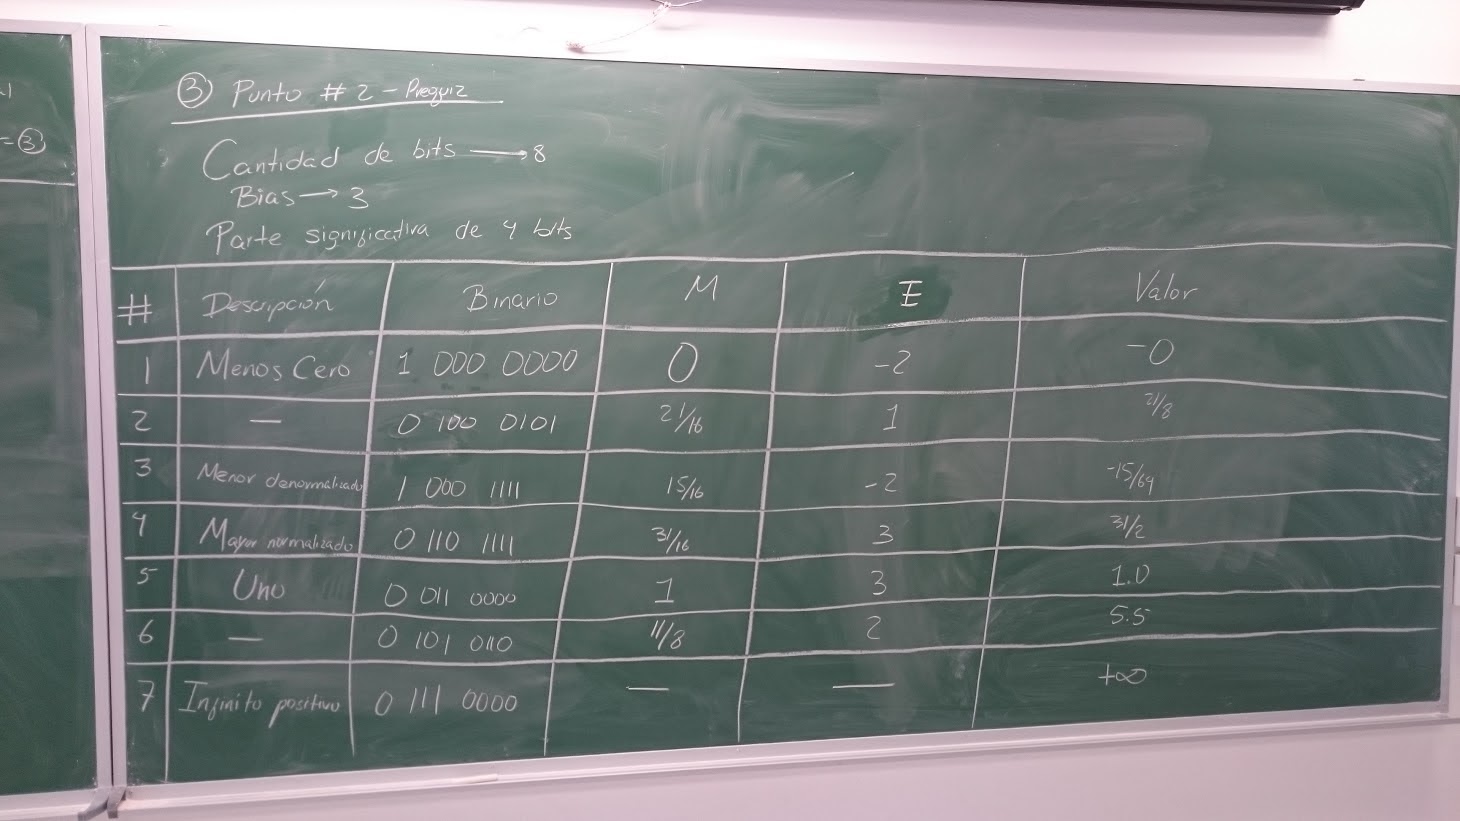 al
= ③
③ Punto # 2 - Prequiz
Cantidad de bits → 8
Bias → 3
Parte significativa de 4 bits
# Descripción Binario M E Valor
1 Menos Cero 1 000 0000 0 -2 -0
2 — 0 100 0101 21/16 1 21/8
3 Menor denormalizado 1 000 1111 15/16 -2 -15/64
4 Mayor normalizado 0 110 1111 31/16 3 31/2
5 Uno 0 011 0000 1 3 1.0
6 — 0 101 0110 11/8 2 5.5
7 Infinito positivo 0 111 0000 — — +∞